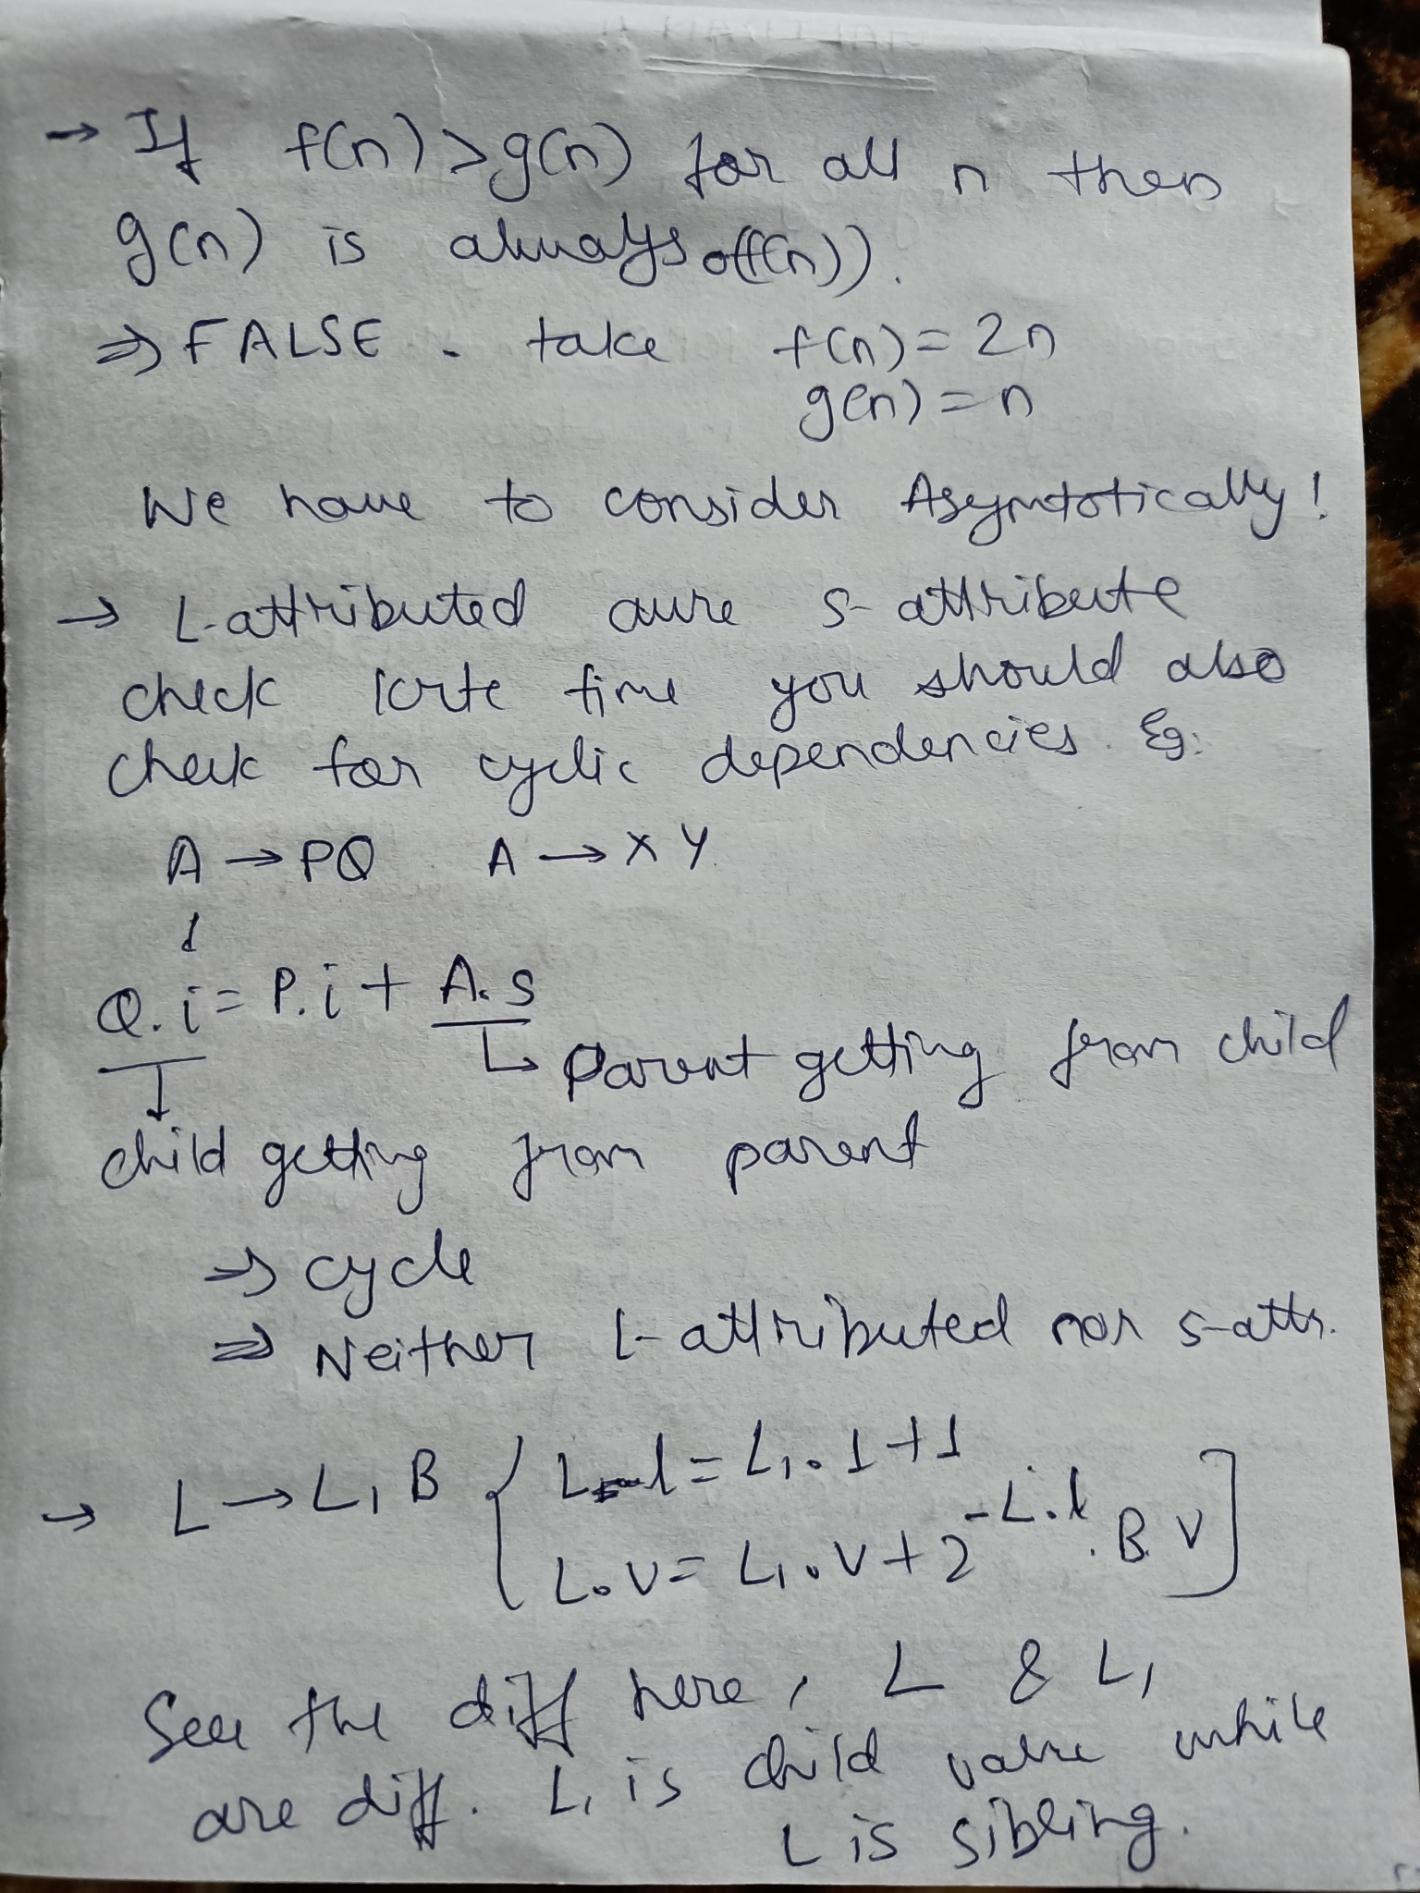 → If f(n) > g(n) for all n then
g(n) is always o(f(n)).
⇒ FALSE. take f(n) = 2n
g(n) = n
We have to consider Asymptotically!
→ L-attributed S-attribute
check time you should also
check for cyclic dependencies. Eg:
A → PQ A → XY
↓
Q.i = P.i + A.s
↳ Parent getting from child
child getting from parent
⇒ cycle
⇒ Neither L-attributed nor S-attr.
→ L → L₁B { L.l = L₁.l + 1
L.v = L₁.v + 2^-L.l . B.v }
See the diff here, L & L₁
are diff. L₁ is child value while
L is sibling.